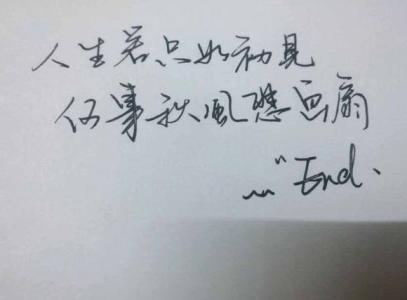 人生若只如初見
何事秋風悲画扇
…"End.